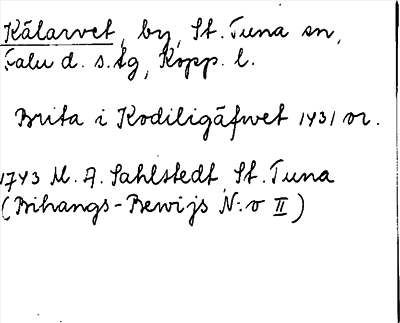 Kälarvet, by, St. Tuna sn,
Falu d. s. tg, Kopp. l.
Brita i Kodiligäfwet 1431 or.
1743 M. A. Sahlstedt, St. Tuna
(Bihangs-Bewijs N:o II)